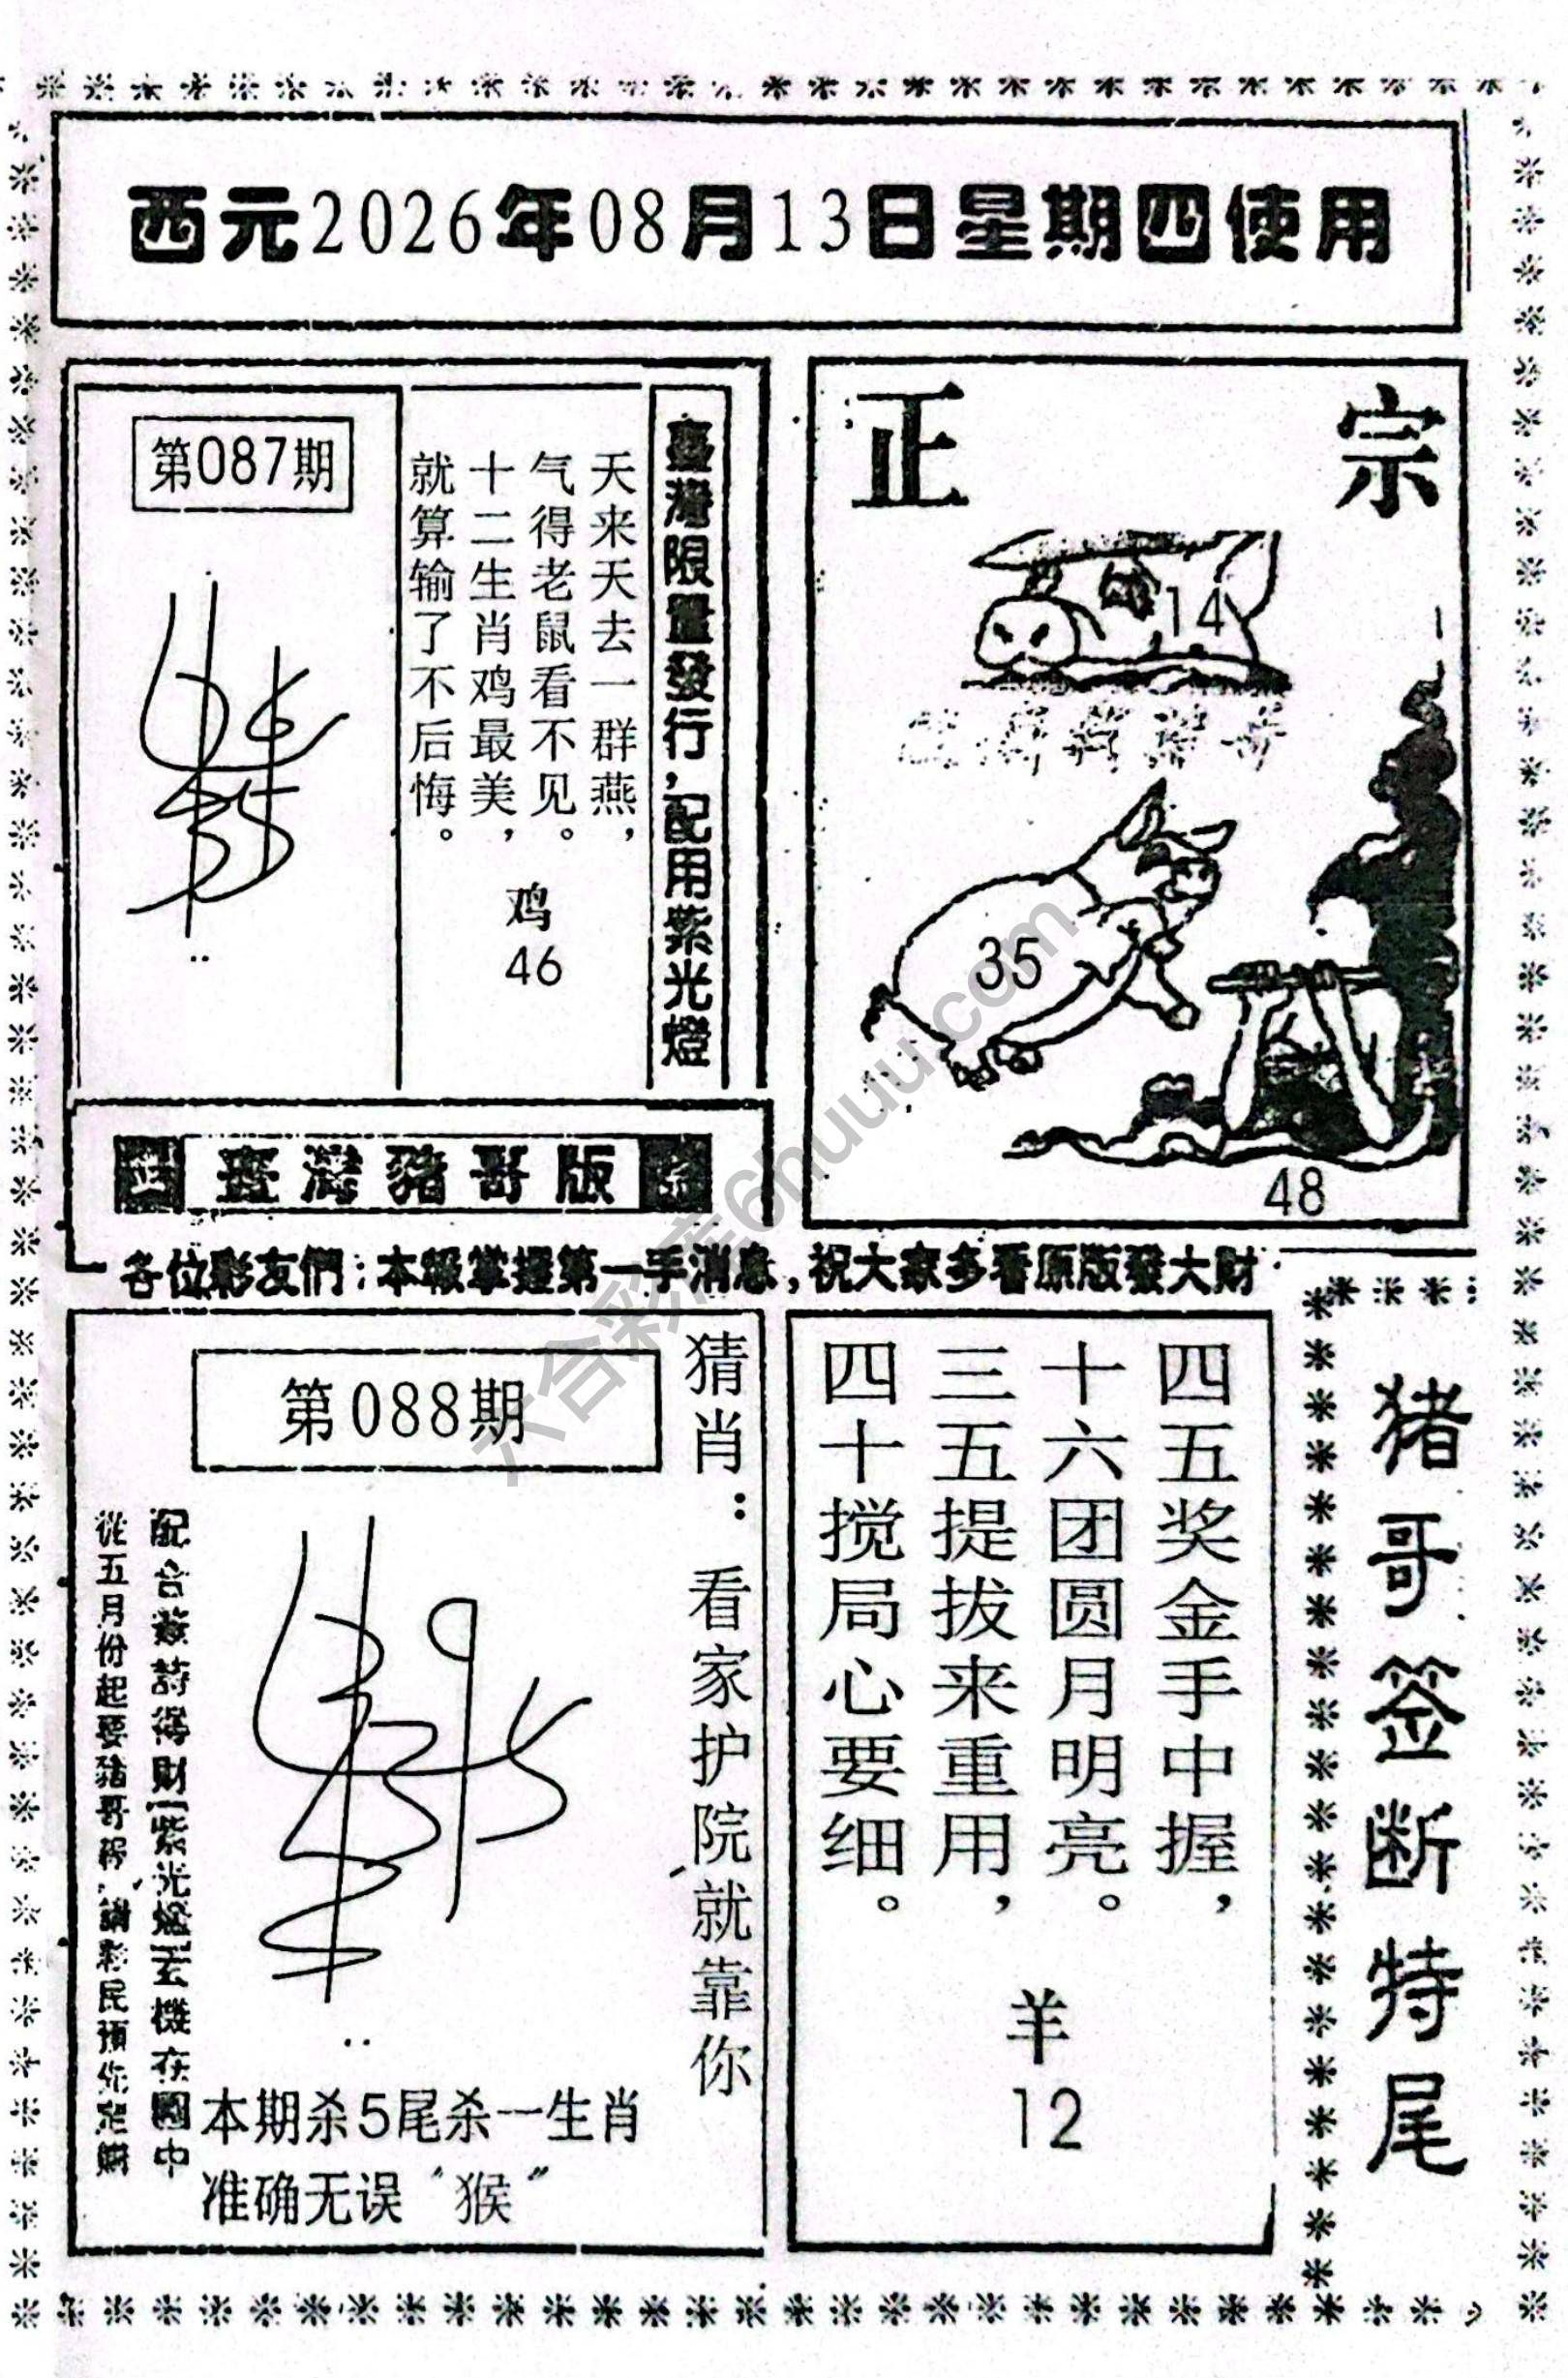 西元2026年08月13日星期四使用
第087期
臺灣限量發行，配用紫光燈
天来天去一群燕，
气得老鼠看不见。
十二生肖鸡最美，
就算输了不后悔。
鸡
46
正宗
14
35
48
臺灣豬哥版
各位彩友們：本報掌握第一手消息，祝大家多看原版發大财
第088期
猜肖：看家护院就靠你
從五月份起要猪哥
民預你
得财
紫光燈
玄機在圖中
本期杀5尾杀一生肖
准确无误“猴”
四五奖金手中握，
十六团圆月明亮。
三五提拔来重用，
四十搅局心要细。
羊
12
猪哥签断特尾
六合彩库6huuu.com